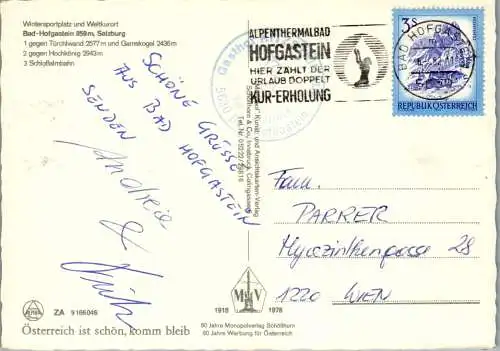 Wintersportplatz und Weltkurort
Bad-Hofgastein 859 m, Salzburg
1 gegen Türchlwand 2577 m und Gamskogel 2436 m
2 gegen Hochkogel 2043 m
3 Schloßalmbahn
ALPENTHERMALBAD
HOFGASTEIN
HIER ZÄHLT DER
URLAUB DOPPELT
KUR-ERHOLUNG
BAD HOFGASTEIN
3 S
REPUBLIK ÖSTERREICH
Gasthof
5630
SCHÖNE GRÜSSE
AUS BAD HOFGASTEIN
SENDEN
Andrea
&
Kunst- und Ansichtskarten-Verlag
Schöllhorn & Co, Innsbruck,
Fam.
PARRER
Hyazinthengasse 28
1220 WIEN
ZA 9166046
Österreich ist schön, komm bleib
1918 1978
60 Jahre Monopolverlag Schöllhorn
60 Jahre Werbung für Österreich